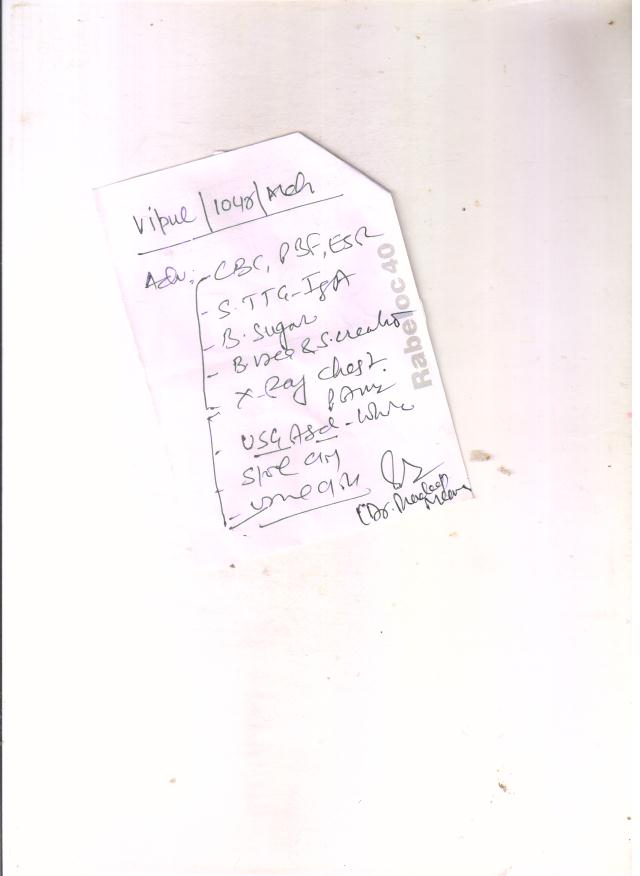 Vipul / 10yr / Mch
Adv:- CBC, PBF, ESR
- S. TTG-IgA
- B. Sugar
- B. Urea & S. creatin
- X-Ray Chest.
P A view
- USG Abd - Whole
- Stool
- Urine
(Dr. Pradeep
Rabeloc 40